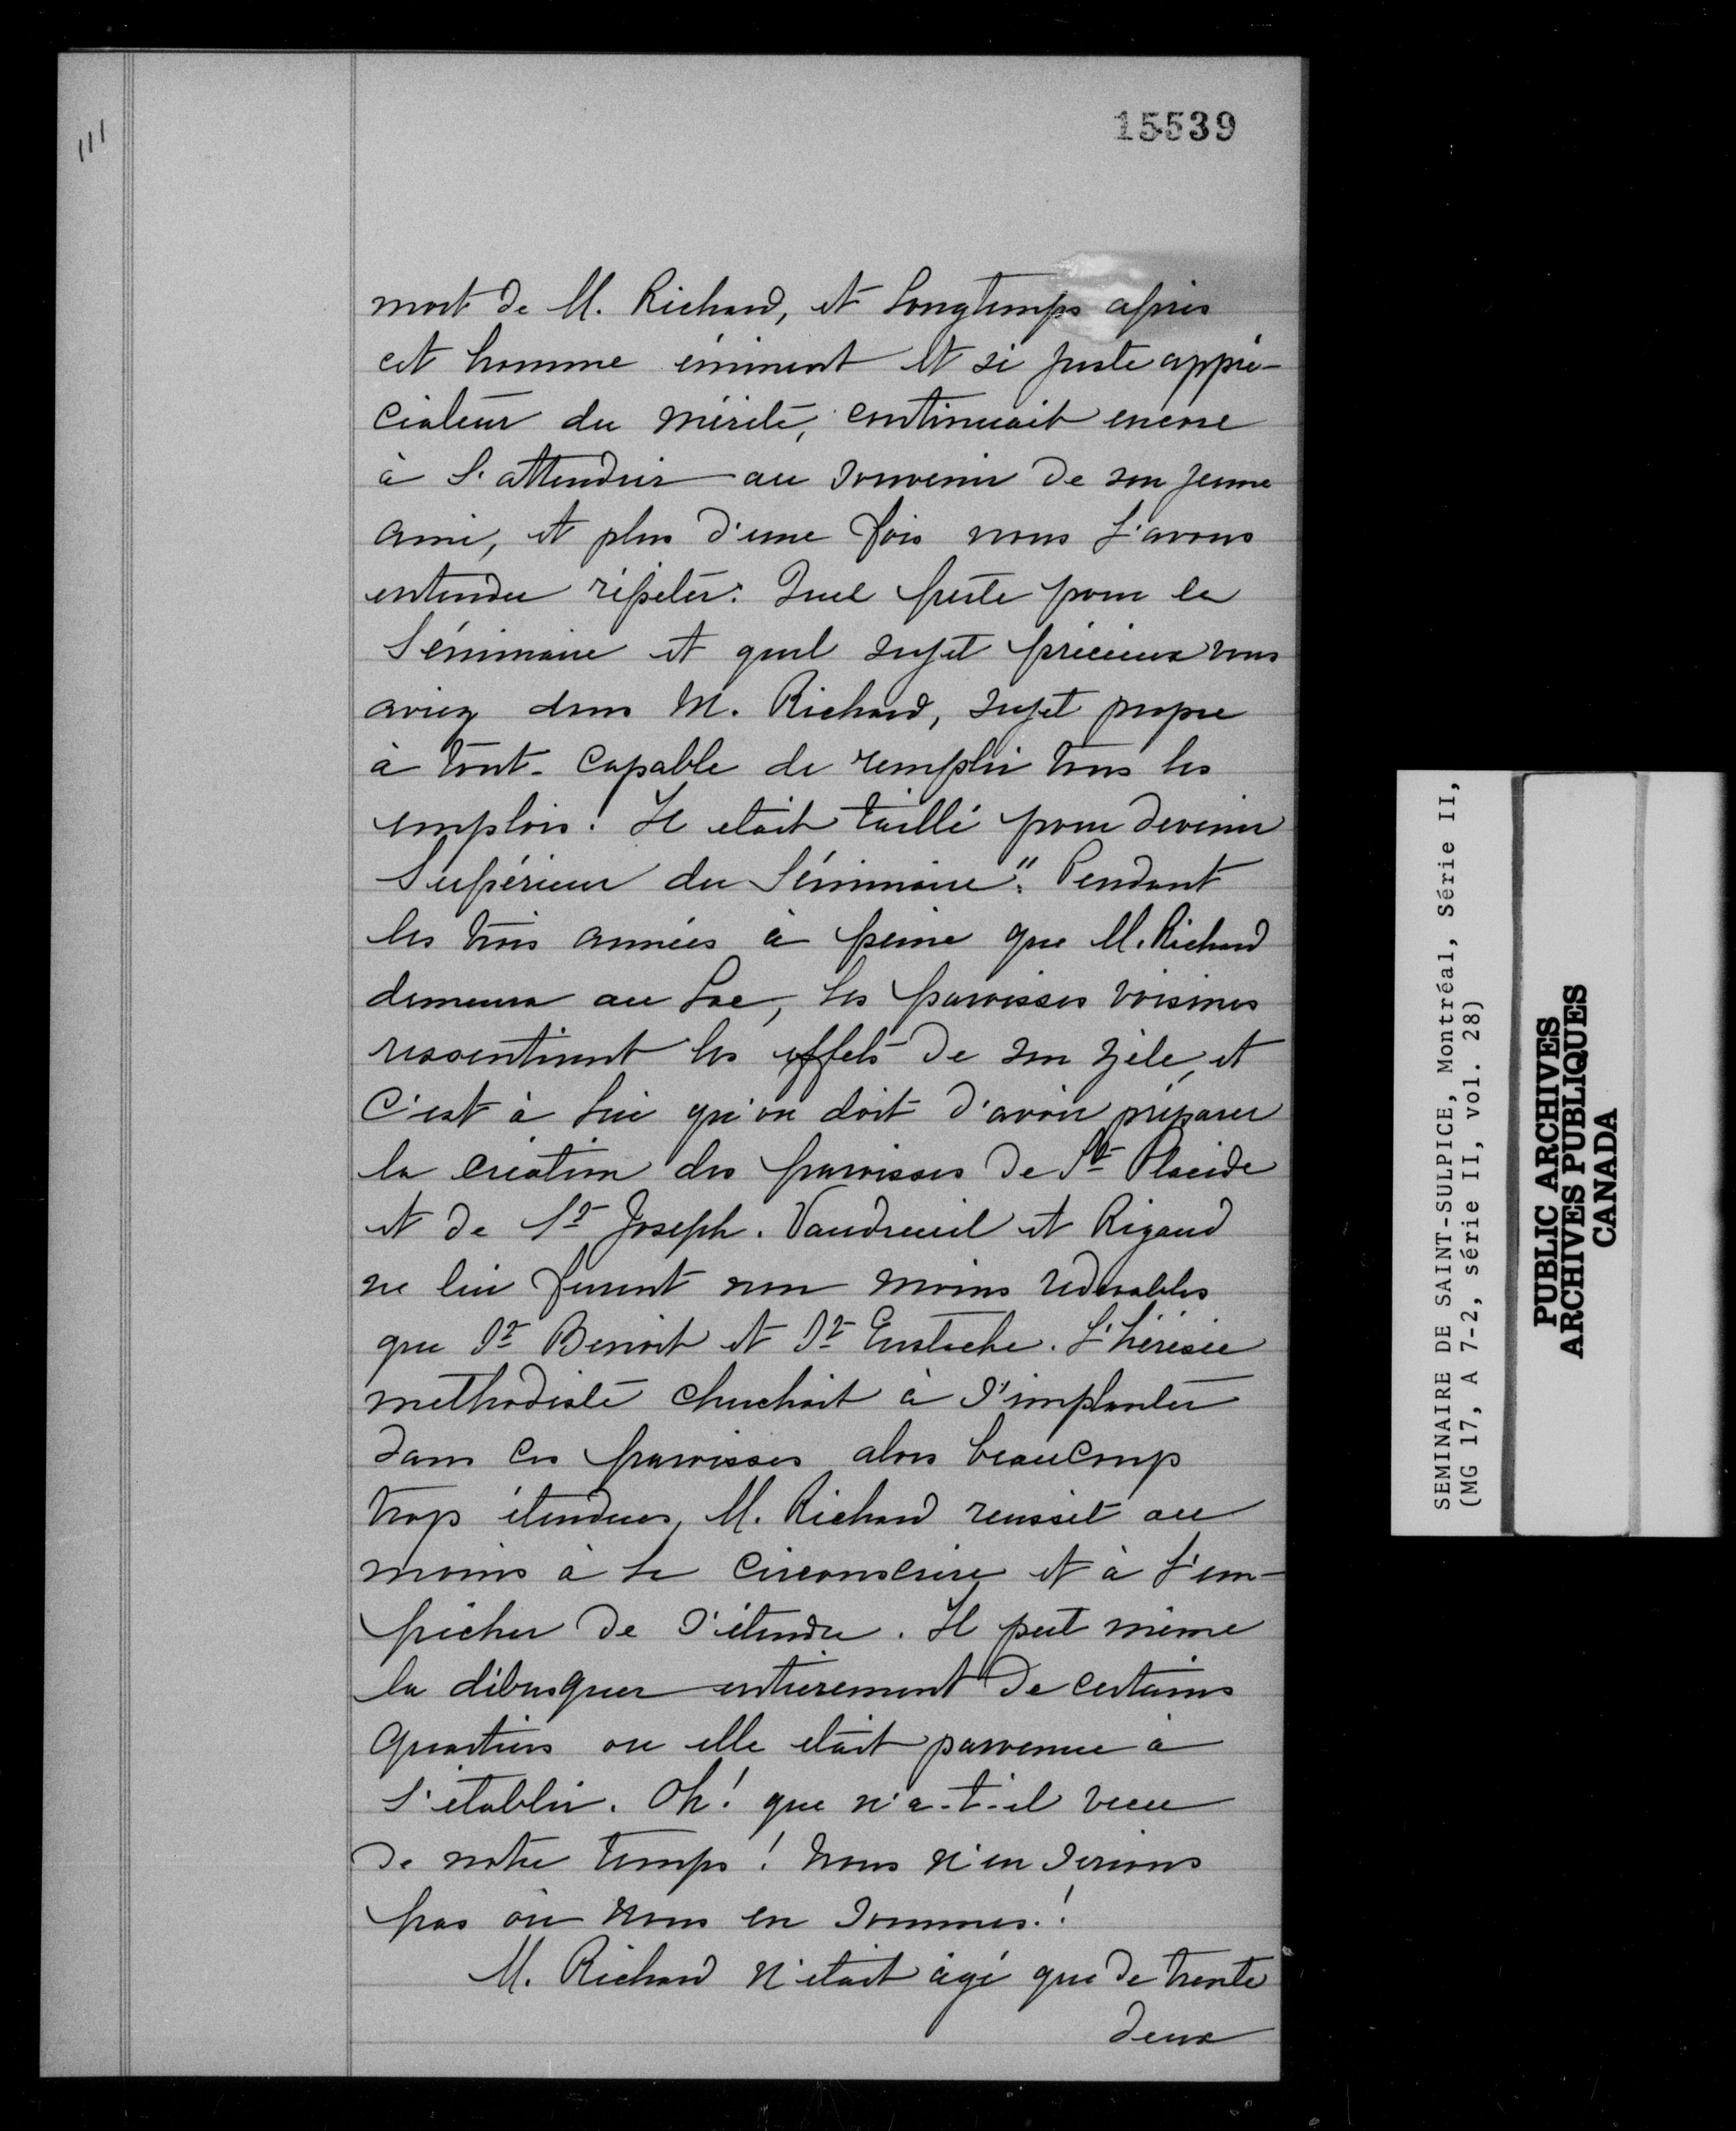 111
15539
mort de M. Richard, et longtemps après
cet homme éminent et si juste appré-
ciateur du mérite, continuait encore
à s'attendrir au souvenir de son jeune
ami, et plus d'une fois nous l'avons
entendu répéter: Quel perte pour le
Séminaire et quel sujet précieux vous
aviez dans M. Richard, sujet propre
à tout - capable de remplir tous les
emplois! Il etait taillé pour devenir
Supérieur du Séminaire". Pendant
les trois années à peine que M. Richard
demeura au Lac, les paroisses voisines
ressentirent les effets de son zèle, et
C'est à lui qu'on doit d'avoir préparer
la création des paroisses de St Placide
et de St Joseph. Vaudreuil et Rigaud
ne lui furent non moins redevables
que St Benoit et St Eustache. L'hérésie
méthodiste cherchait à s'implanter
dans ces paroisses alors beaucoup
trop étendues, M. Richard reussit au
moins à la circonscrire et à l'em-
pêcher de s'étendre. Il put même
la débusquer entièrement de certains
quartiers ou elle etait parvenue à
s'établir. Oh! que n'a-t-il vecu
de notre temps! Nous n'en serions
pas où nous en sommes!
M. Richard n'etait âgé que de trente
deux
SEMINAIRE DE SAINT-SULPICE, Montréal, Série II,
(MG 17, A 7-2, série II, vol. 28)
PUBLIC ARCHIVES
ARCHIVES PUBLIQUES
CANADA